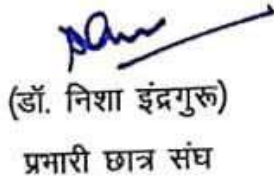 (डॉ. निशा इंद्रगुरू)
प्रभारी छात्र संघ